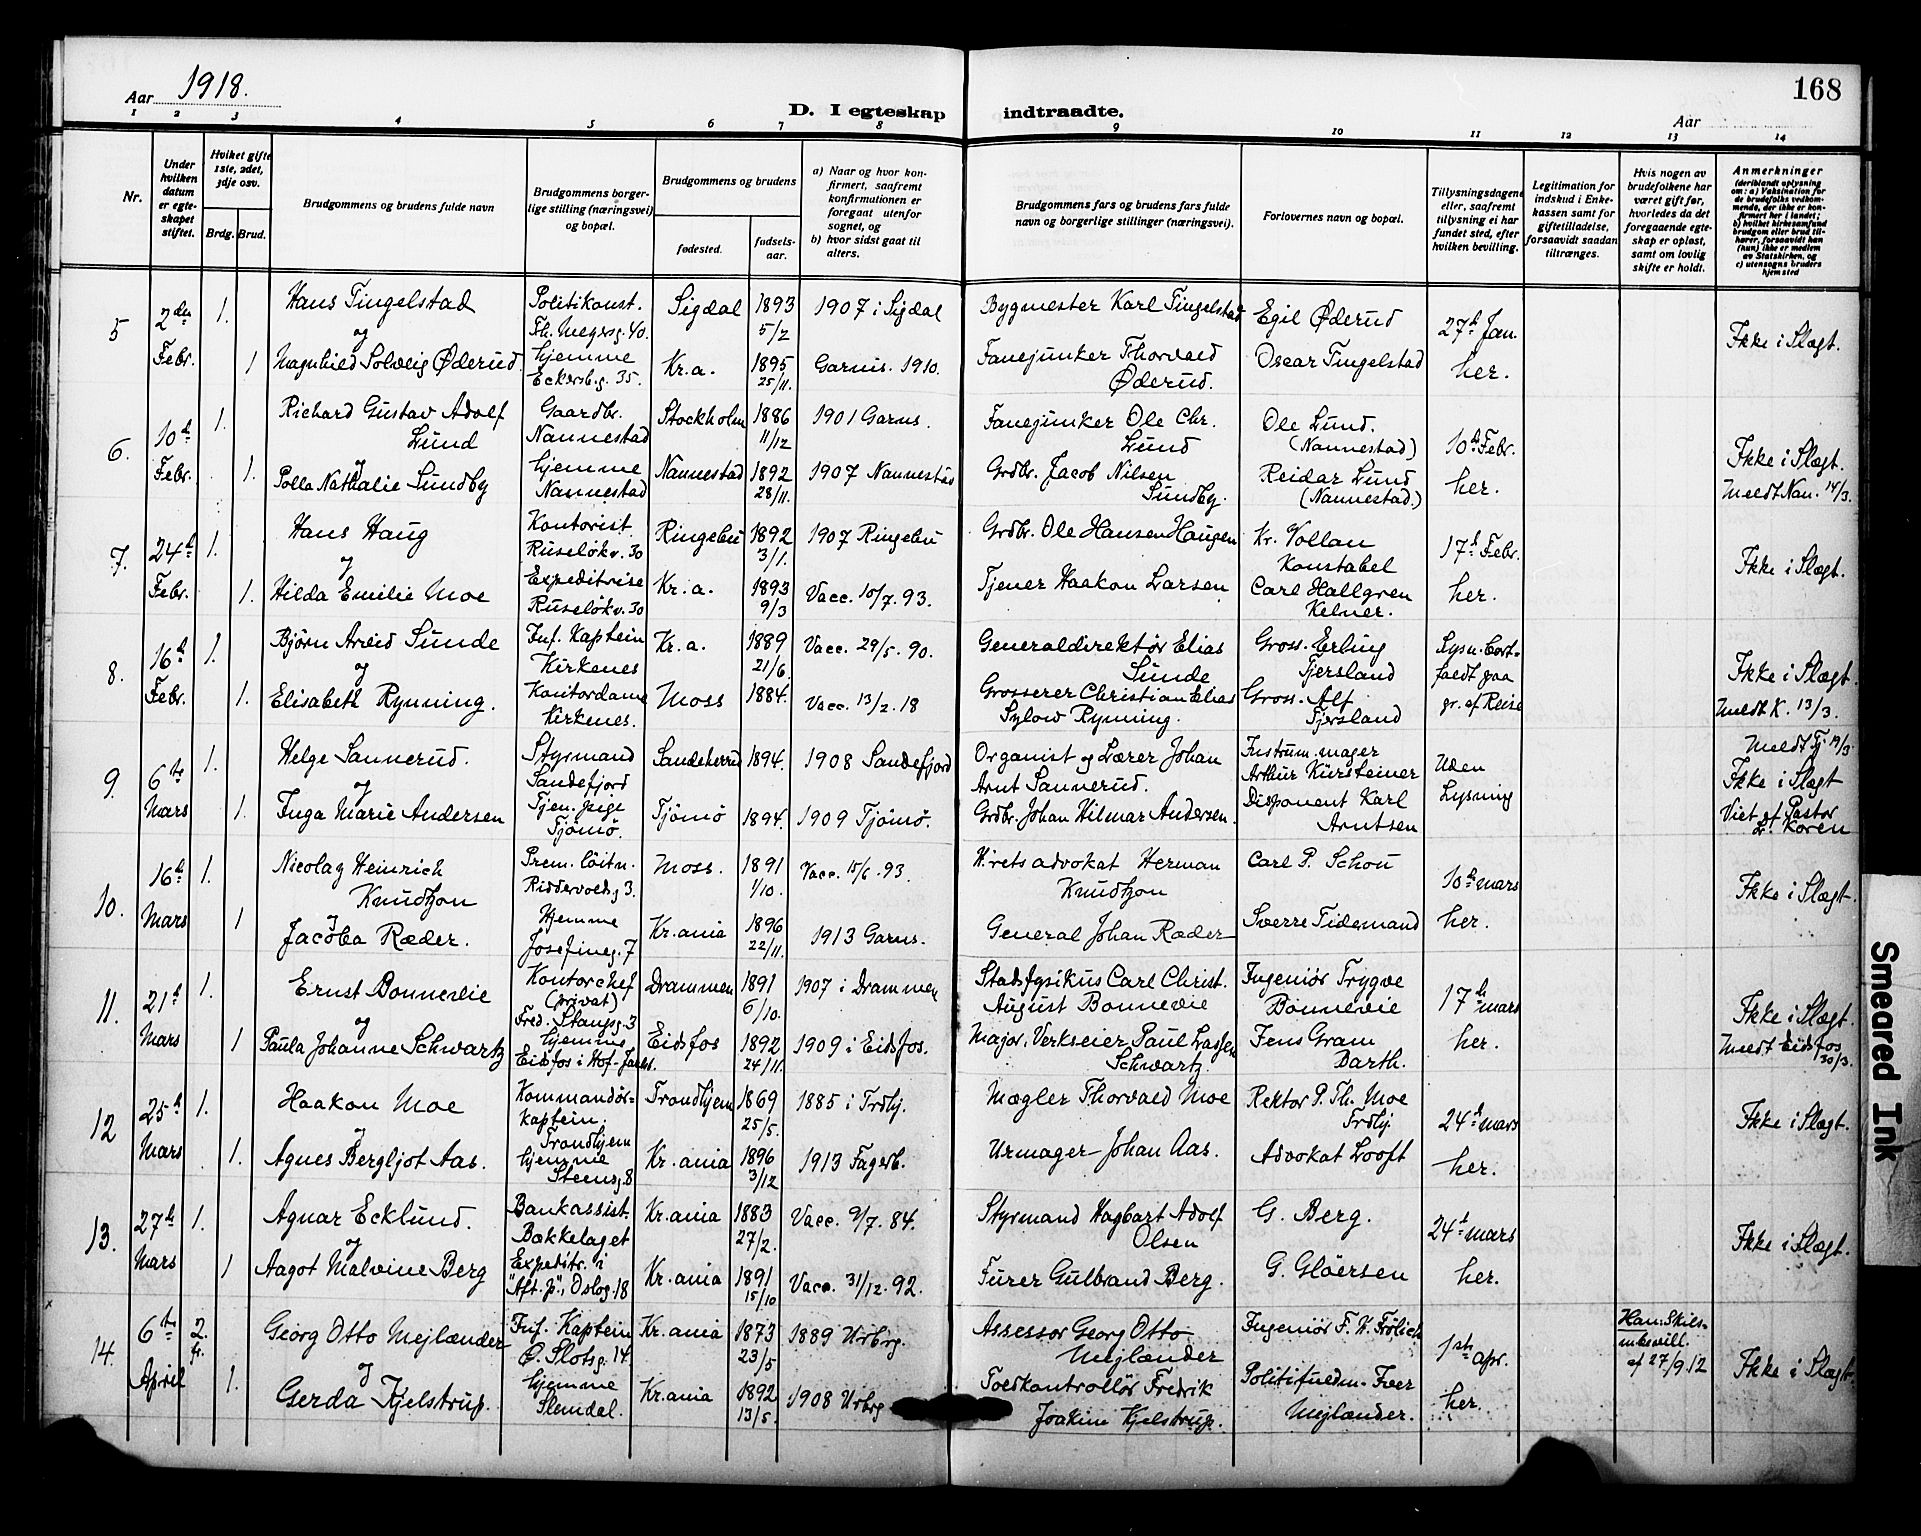 168
Aar 1918.
D. I egteskap indtraadte.
Aar
1 2 3 4 5 6 7 8 9 10 11 12 13 14
Nr.
Under hvilken datum er egteskapet stiftet.
Hvilket gifte 1ste, 2det, 3dje osv.
Brdg. Brud.
Brudgommens og brudens fulde navn
Brudgommens borgerlige stilling (næringsvei) og bopæl.
Brudgommens og brudens
fødested. fødselsaar.
a) Naar og hvor konfirmert, saafremt konfirmationen er foregaat utenfor sognet, og
b) hvor sidst gaat til alters.
Brudgommens fars og brudens fars fulde navn og borgerlige stillinger (næringsvei).
Forlovernes navn og bopæl.
Tillysningsdagene eller, saafremt tillysning ei har fundet sted, efter hvilken bevilling.
Legitimation for indskud i Enkekassen samt for giftetilladelse, forsaavidt saadan tiltrænges.
Hvis nogen av brudefolkene har været gift før, hvorledes da det foregaaende egteskap er opløst, samt om lovlig skifte er holdt.
Anmerkninger
(deriblandt oplysning om: a) Vaksination for de brudefolks vedkommende, der ikke er konfirmert her i landet; b) hvilket kirkesamfund brudgom eller brud tilhører, forsaavidt han (hun) ikke er medlem av Statskirken, og c) utensogns bruders hjemsted
5 2den Febr. 1. Hans Tingelstad Politikonst. Th. Meyersg. 40. Sigdal 1893 5/2 1907 i Sigdal Bygmester Karl Tingelstad Egil Øderud 27d Jan.
og
1 Magnhild Solveig Øderud hjemme Eckersbg. 35. Kr.a. 1895 25/11. Garnis. 1910. Fanejunker Thorvald Øderud. Oscar Tingelstad her. Ikke i Slægt.
6 10d Febr. 1. Richard Gustav Adolf Lund Gaardbr. Nannestad Stockholm 1886 11/12 1901 Garns. Fanejunker Ole Chr. Lund Ole Lund. (Nannestad) 10d Febr.
og
1. Polla Nathalie Sundby hjemme Nannestad Nannestad 1892 28/11. 1907 Nannestad Grdbr. Jacob Nilsen Sundby. Reidar Lund (Nannestad.) her. Ikke i Slægt. Meldt Nan. 14/3.
7. 24d Febr. 1. Hans Haug Kontorist. Ruseløkv. 30 Ringebu 1892 3/1. 1907 Ringebu Grdbr. Ole Hansen Haugen Kr. Vollan Konstabel 17d Febr.
og
1. Hilda Emilie Moe Expeditrise Ruseløkv. 30 Kr.a. 1893 9/3 Vacc. 10/7. 93. Tjener Haakon Larsen Carl Hallgren Kelner. her. Ikke i Slægt.
8. 16d Febr. 1. Bjørn Arvid Sunde Inf. Kaptein Kirkenes Kr.a. 1889 21/6. Vacc. 29/5. 90. Generaldirektør Elias Sunde Gross. Erling Fjersland Lysn. bortfaldt paa gr. af Reise
og
1. Elisabeth Rynning. Kontordame Kirkenes. Moss 1884. Vacc. 13/2. 18 Grosserer Christian Elias Sylow Rynning. Gross. Alf Fjersland Ikke i Slægt. Meldt K. 13/3.
9. 6te Mars 1. Helge Sannerud. Styrmand Sandefjord Sandeherred 1894. 1908 Sandefjord Organist og Lærer Johan Arnt Sannerud. Instrum. mager Arthur Kürsteiner Uden Lysning
og
1. Inga Marie Andersen Tjen. pige Tjømø. Tjömö 1894. 1909 Tjömö. Grdbr. Johan Hilmar Andersen. Disponent Karl Arntsen Meldt Tj. 19/3 Ikke i Slægt Viet af Pastor L. Koren
10. 16d Mars 1. Nicolay Heinrich Knudtzon Prem. löitn. Riddervoldsg. 3. Moss. 1891 1/10. Vacc. 15/6. 93. H'retsadvokat Herman Knudtzon Carl P. Schou 10d mars
og
1 Jacoba Ræder. Hjemme Josefinesg. 7 Kr.ania 1896 22/11. 1913 Garns. General Johan Ræder Sverre Tidemand her. Ikke i Slægt.
11. 21d Mars 1. Ernst Bonnevie Kontorchef (privat) Fred. Stangsg. 3 Drammen 1891 6/10. 1907 i Drammen Stadsfysikus Carl Christ. August Bonnevie Ingeniør Trygve Bonnevie 17d mars
og
1 Paula Johanne Schwartz hjemme Eidsfos i Hof-Jarls. Eidsfos 1892 24/11. 1909 i Eidsfos. Major, Verkseier Paul Lassen Schwartz. Jens Gram Barth. her. Ikke i Slægt. Meldt Eidsfos 30/3.
12 25d Mars 1. Haakon Moe Kommandørkaptein. Trondhjem Trondhjem 1869 25/5. 1885 i Trdhj. Mægler Thorvald Moe Rektor P. Th. Moe Trdhj. 24d mars
og
1. Agnes Bergljot Aas. hjemme Steensg. 8 Kr.ania 1896 3/12 1913 Fagerb. Urmager Johan Aas. Advokat Looft her. Ikke i Slægt.
13. 27d Mars 1. Agnar Ecklund. Bankassist. Bækkelaget Kr.ania 1883 27/2. Vacc. 9/7. 84. Styrmand Hagbart Adolf Olsen G. Berg. 24d mars
og
1 Aagot Malvine Berg Expeditr. i "Aft. p.", Oslog. 18 Kr.ania 1891 15/10 Vacc. 31/12. 92. Furer Gulbrand Berg. G. Glöersen her. Ikke i Slægt.
14. 6te April 2. fr. Georg Otto Mejlænder Inf. Kaptein Ö. Slotsg. 14. Kr.ania 1873 23/5 1889 Urbrg. Assessor Georg Otto Mejlænder Ingeniør F. H. Frölich 1ste Apr. Han: Skilsmksvill. af 27/9. 12
og
1. Gerda Kjelstrup. hjemme Slemdal. Kr.ania 1892 13/5. 1908 Urbrg Toldkontrollör Fredrik Joakim Kjelstrup. Politifuldm. Iver Mejlænder. her. Ikke i Slægt.
Smeared Ink